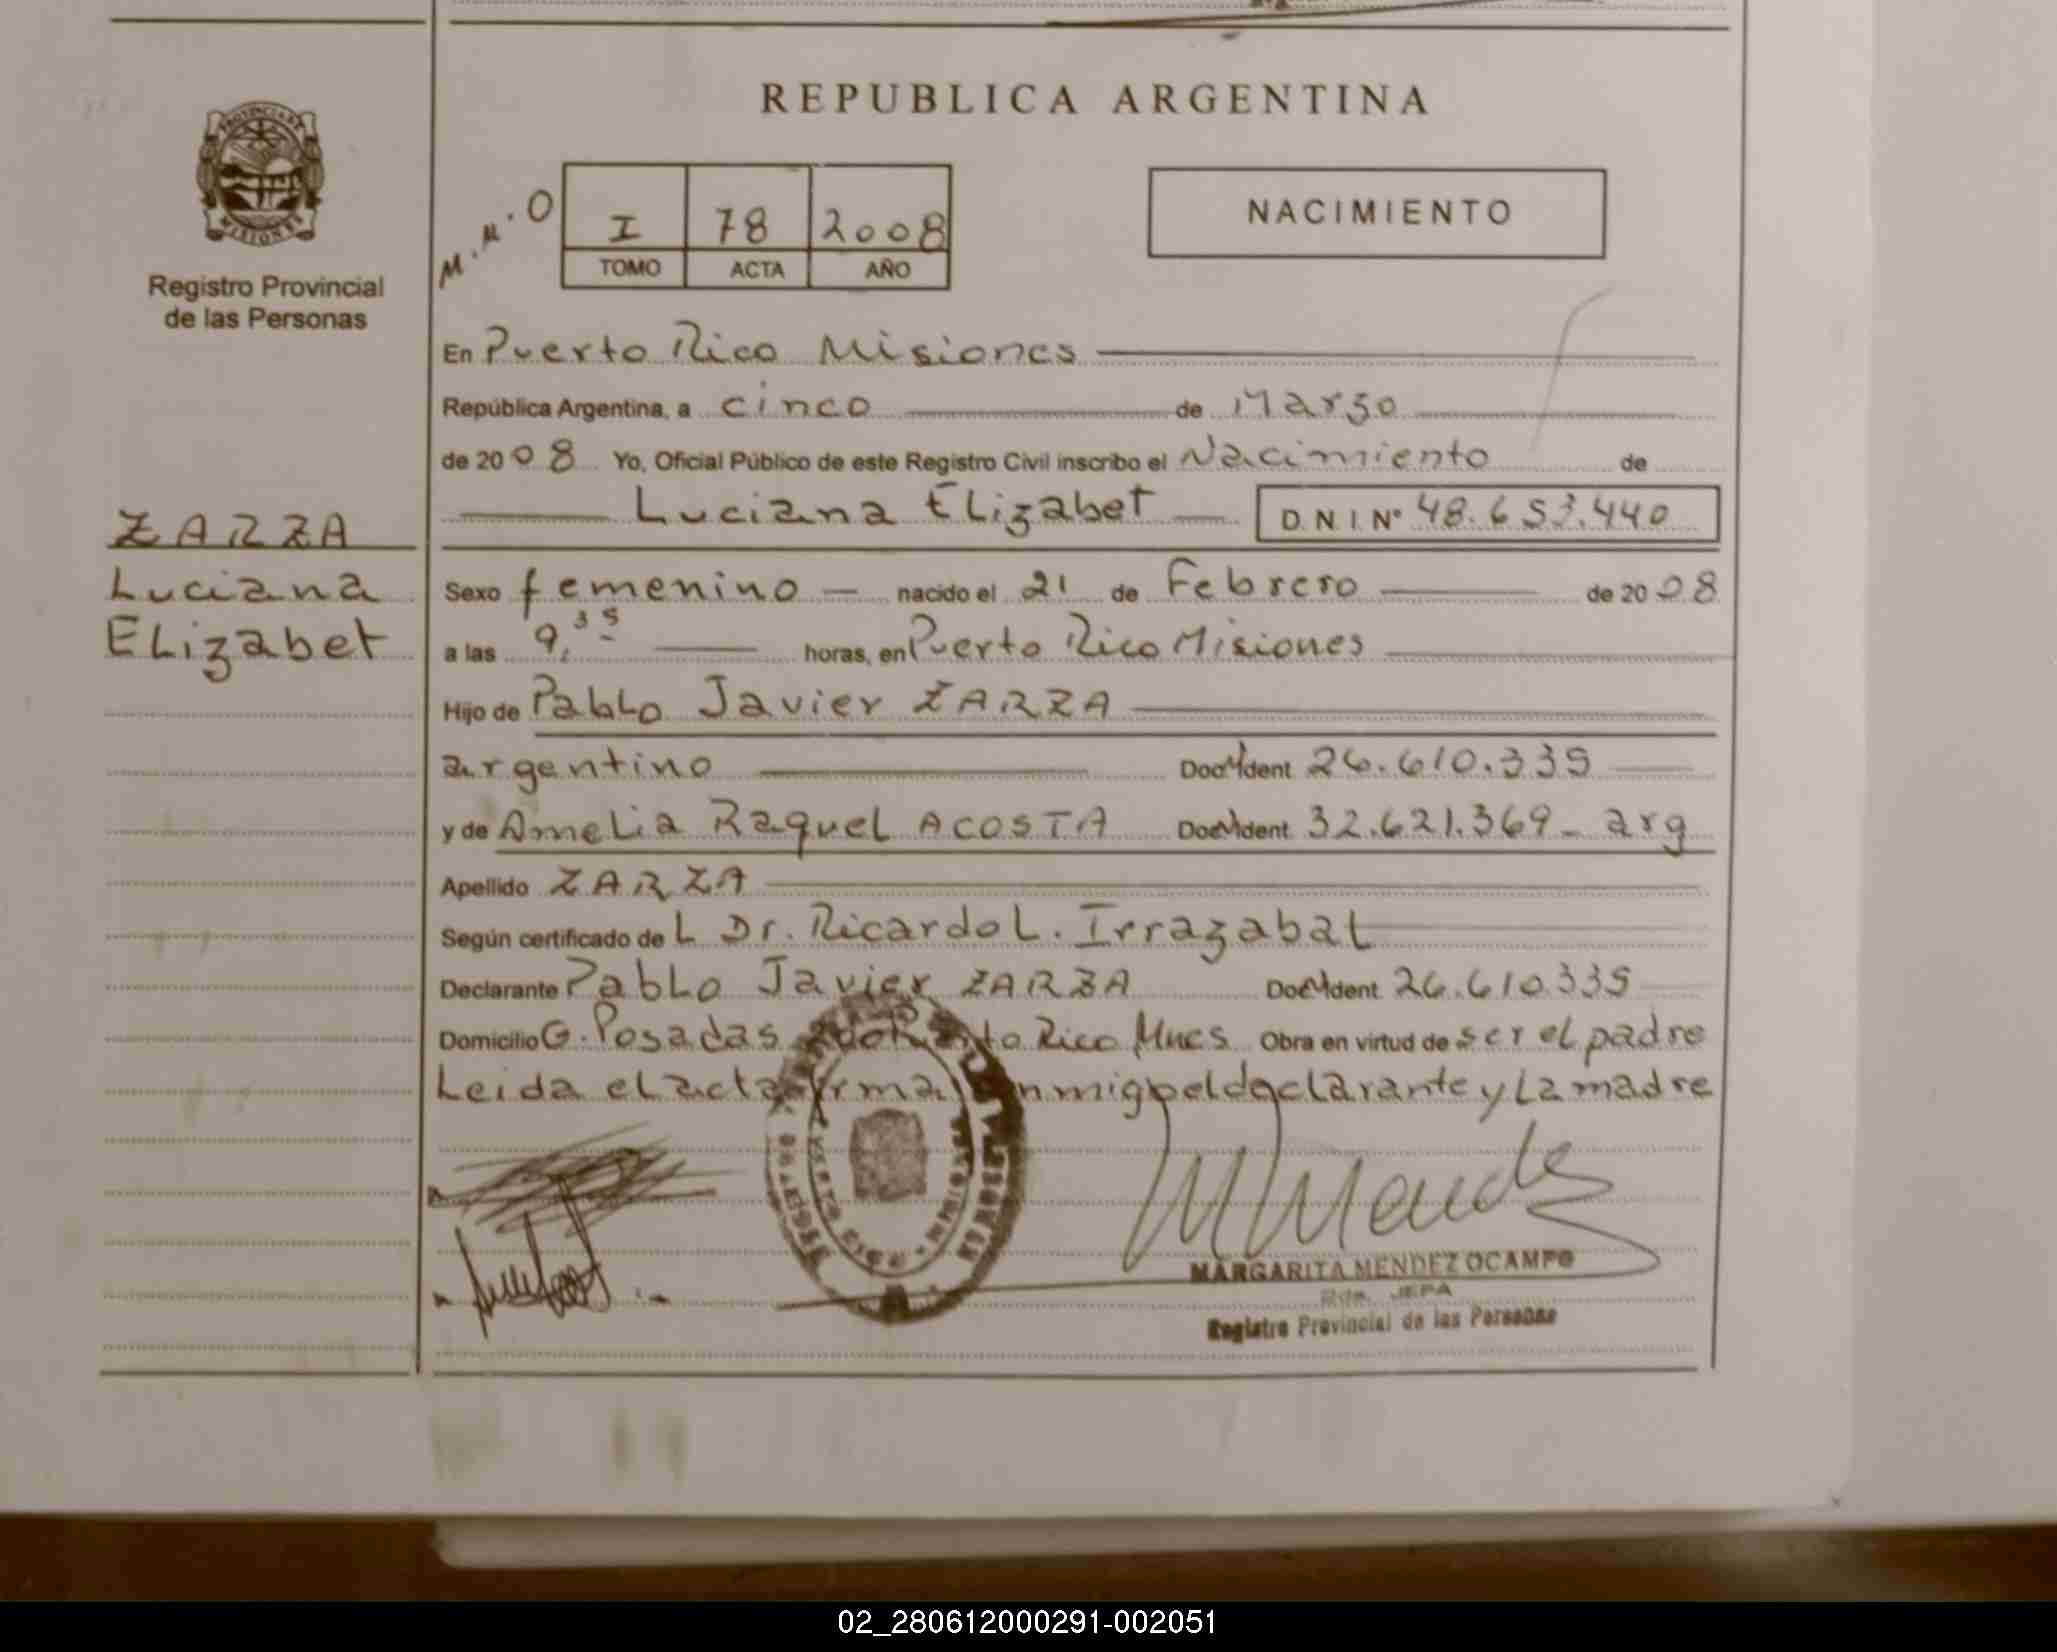 REPUBLICA ARGENTINA
PROVINCIA DE MISIONES
Registro Provincial
de las Personas
M.M.O
I 78 2008
TOMO ACTA AÑO
NACIMIENTO
En Puerto Rico Misiones
República Argentina, a cinco de Marzo
de 2008 Yo, Oficial Público de este Registro Civil inscribo el Nacimiento de
Luciana Elizabet D.N.I. Nº 48.653.440
ZARZA
Luciana
Elizabet
Sexo femenino nacido el 21 de Febrero de 2008
a las 9,35 horas, en Puerto Rico Misiones
Hijo de Pablo Javier ZARZA
argentino Doc. Ident. 26.610.335
y de Amelia Raquel ACOSTA Doc. Ident. 32.621.369 - arg
Apellido ZARZA
Según certificado de L Dr. Ricardo L. Irrazabal
Declarante Pablo Javier ZARZA Doc. Ident. 26.610.335
Domicilio G. Posadas Puerto Rico Mnes Obra en virtud de ser el padre
Leida el acta firman declarante y la madre
MARGARITA MENDEZ OCAMPO
JEFA
Registro Provincial de las Personas
02_280612000291-002051